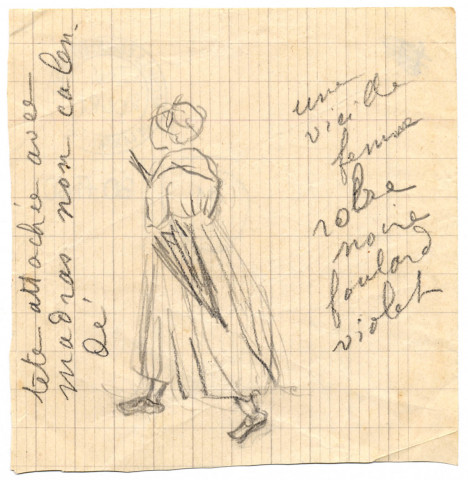 tête attachée avec
madras non calen-
dé
une
vieille
femme
robe
noire
foulard
violet